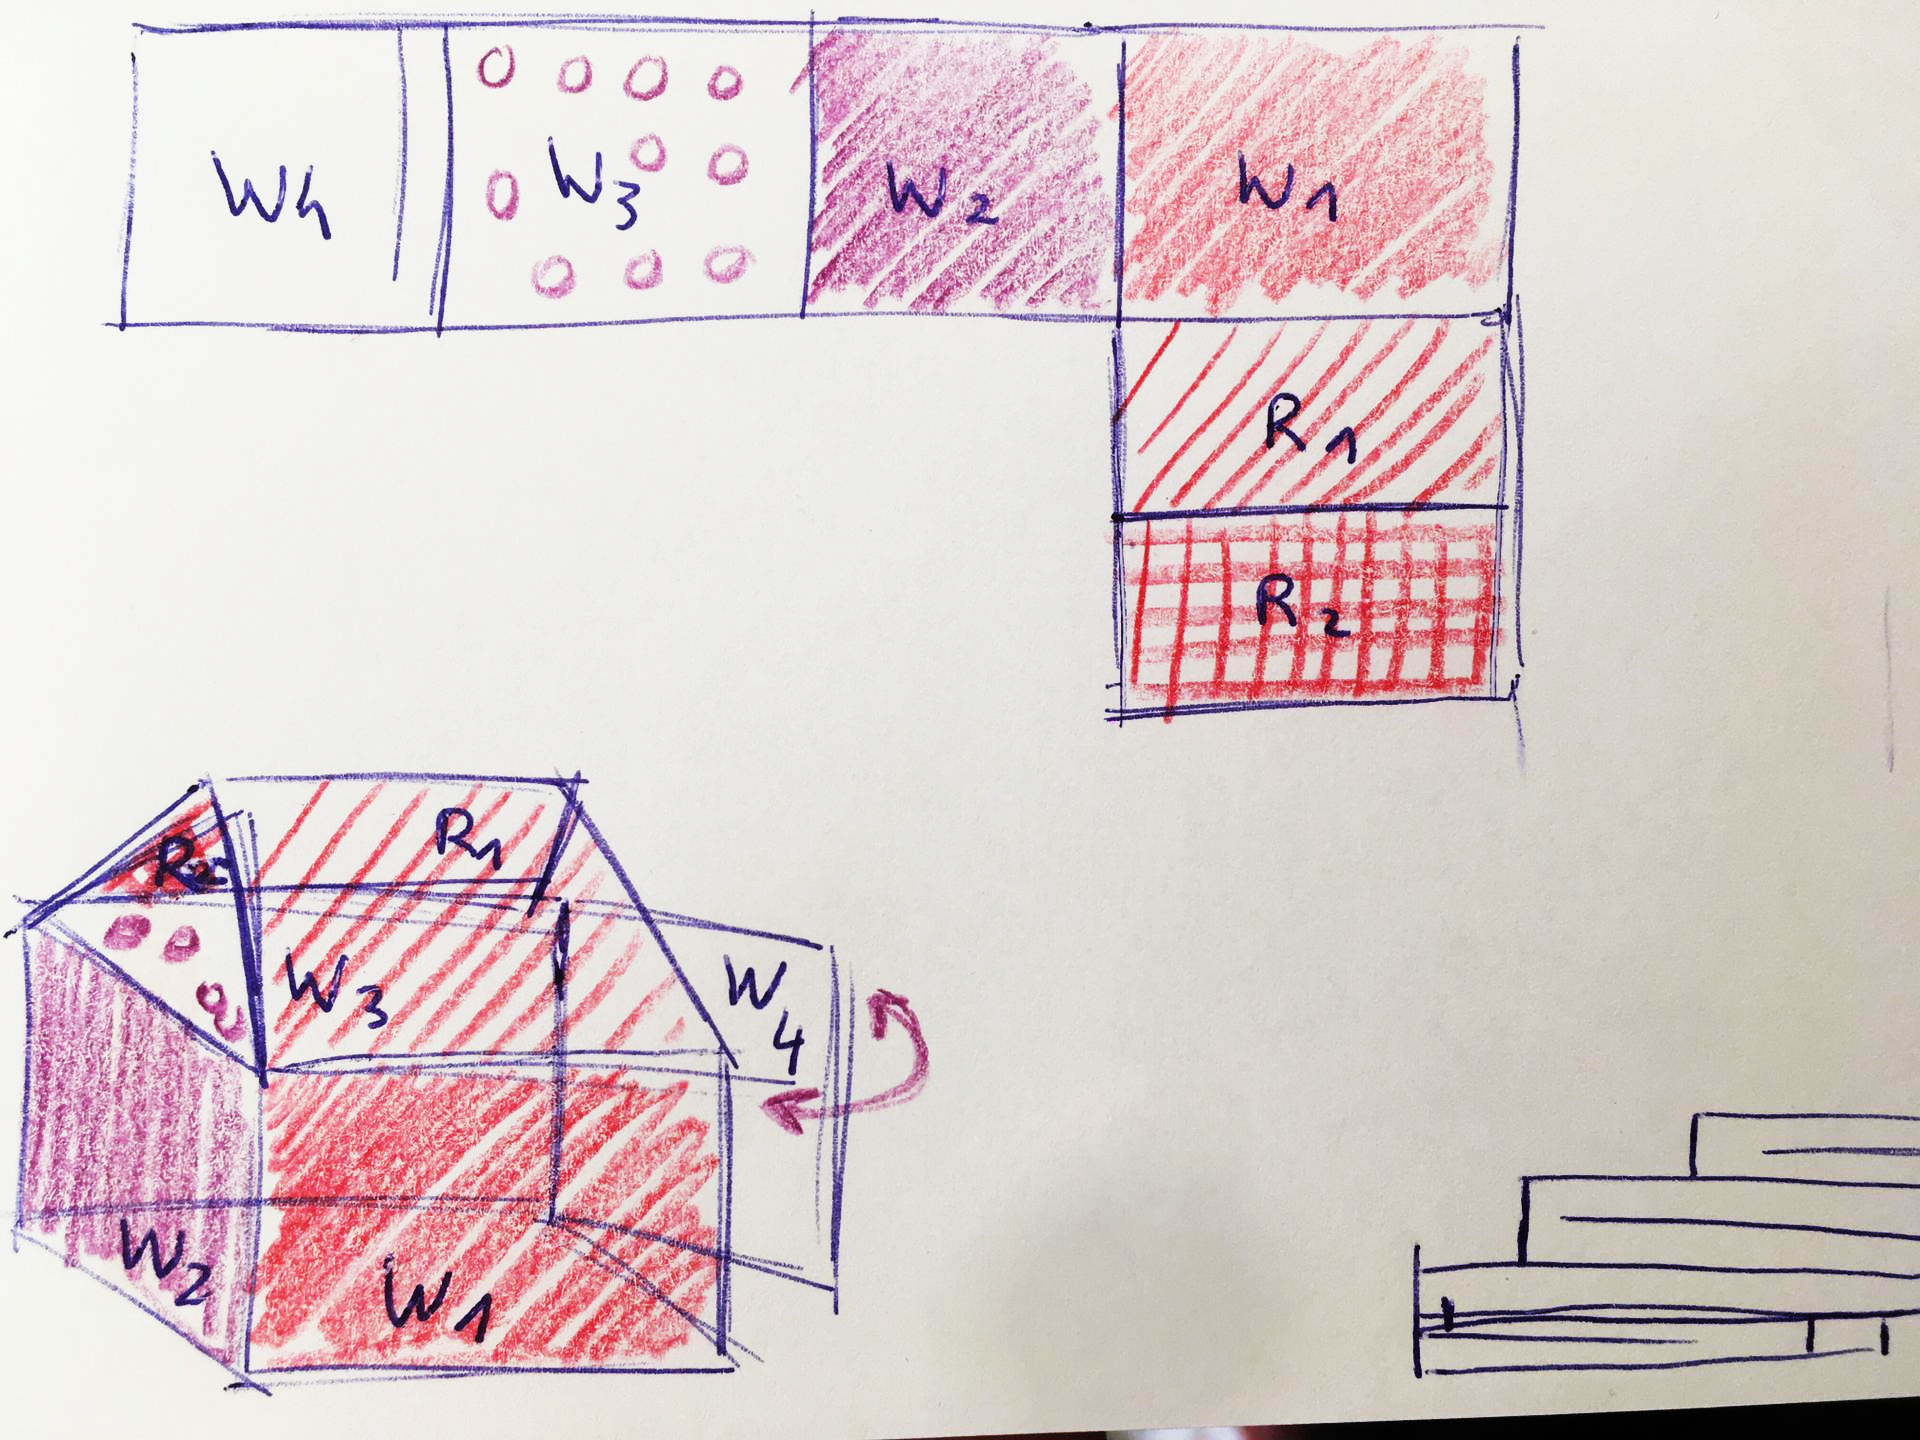 W4 W3 W2 W1
R1
R2
R2 R1
W3 W4
W2 W1